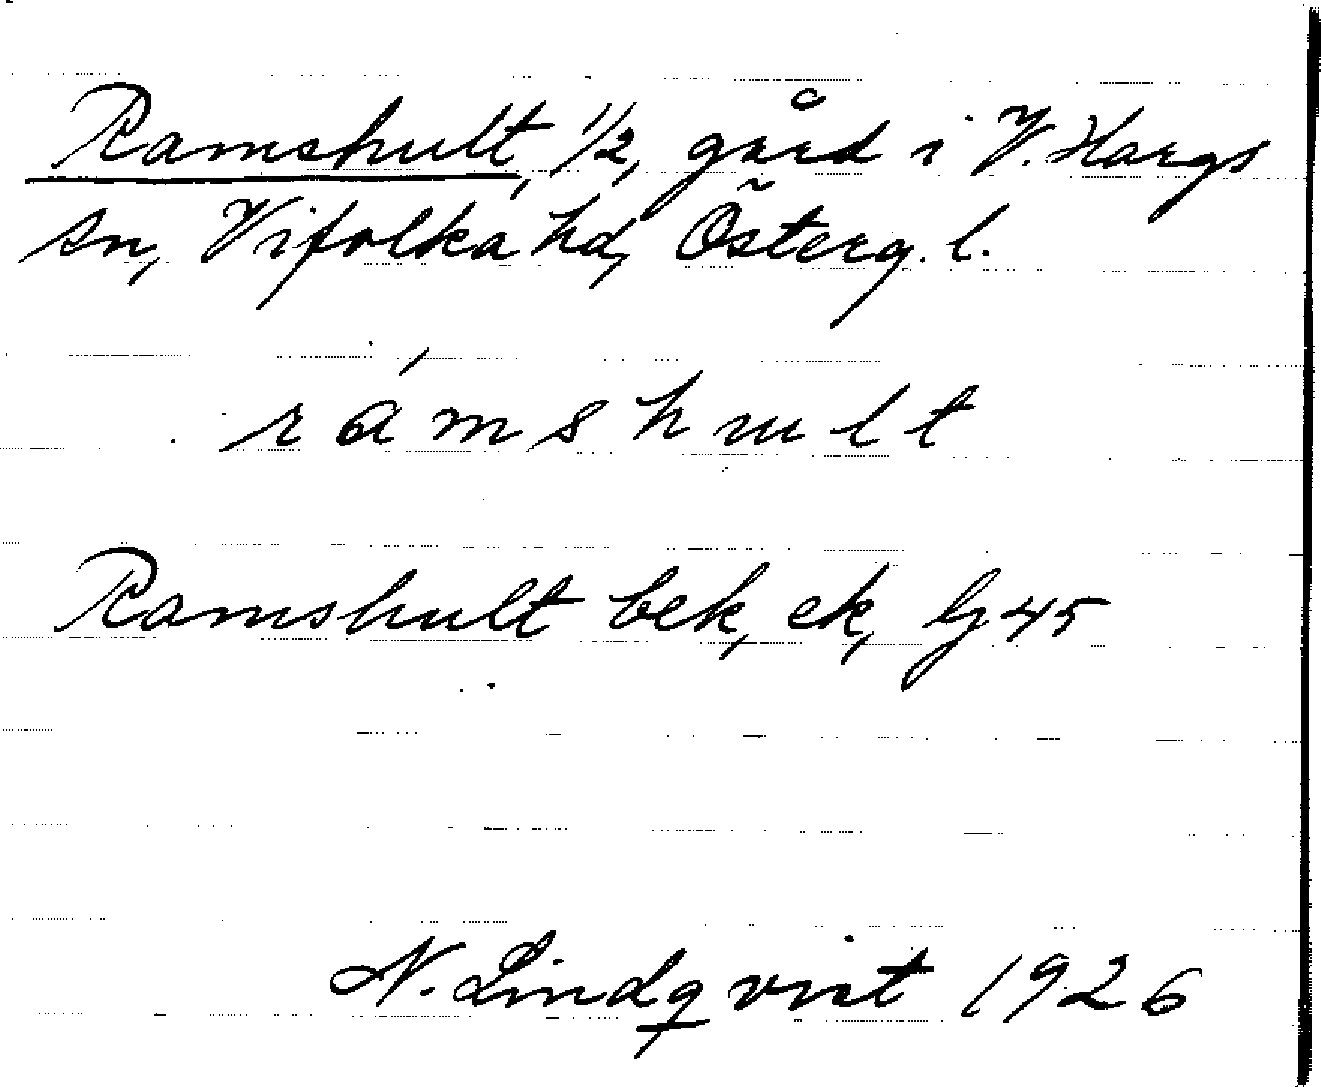 Ramshult, 1/2, gård i V. Hargs
sn, Vifolka hd, Österg. l.
rámshult
Ramshult bek, ek, lj 45
N. Lindqvist 1926